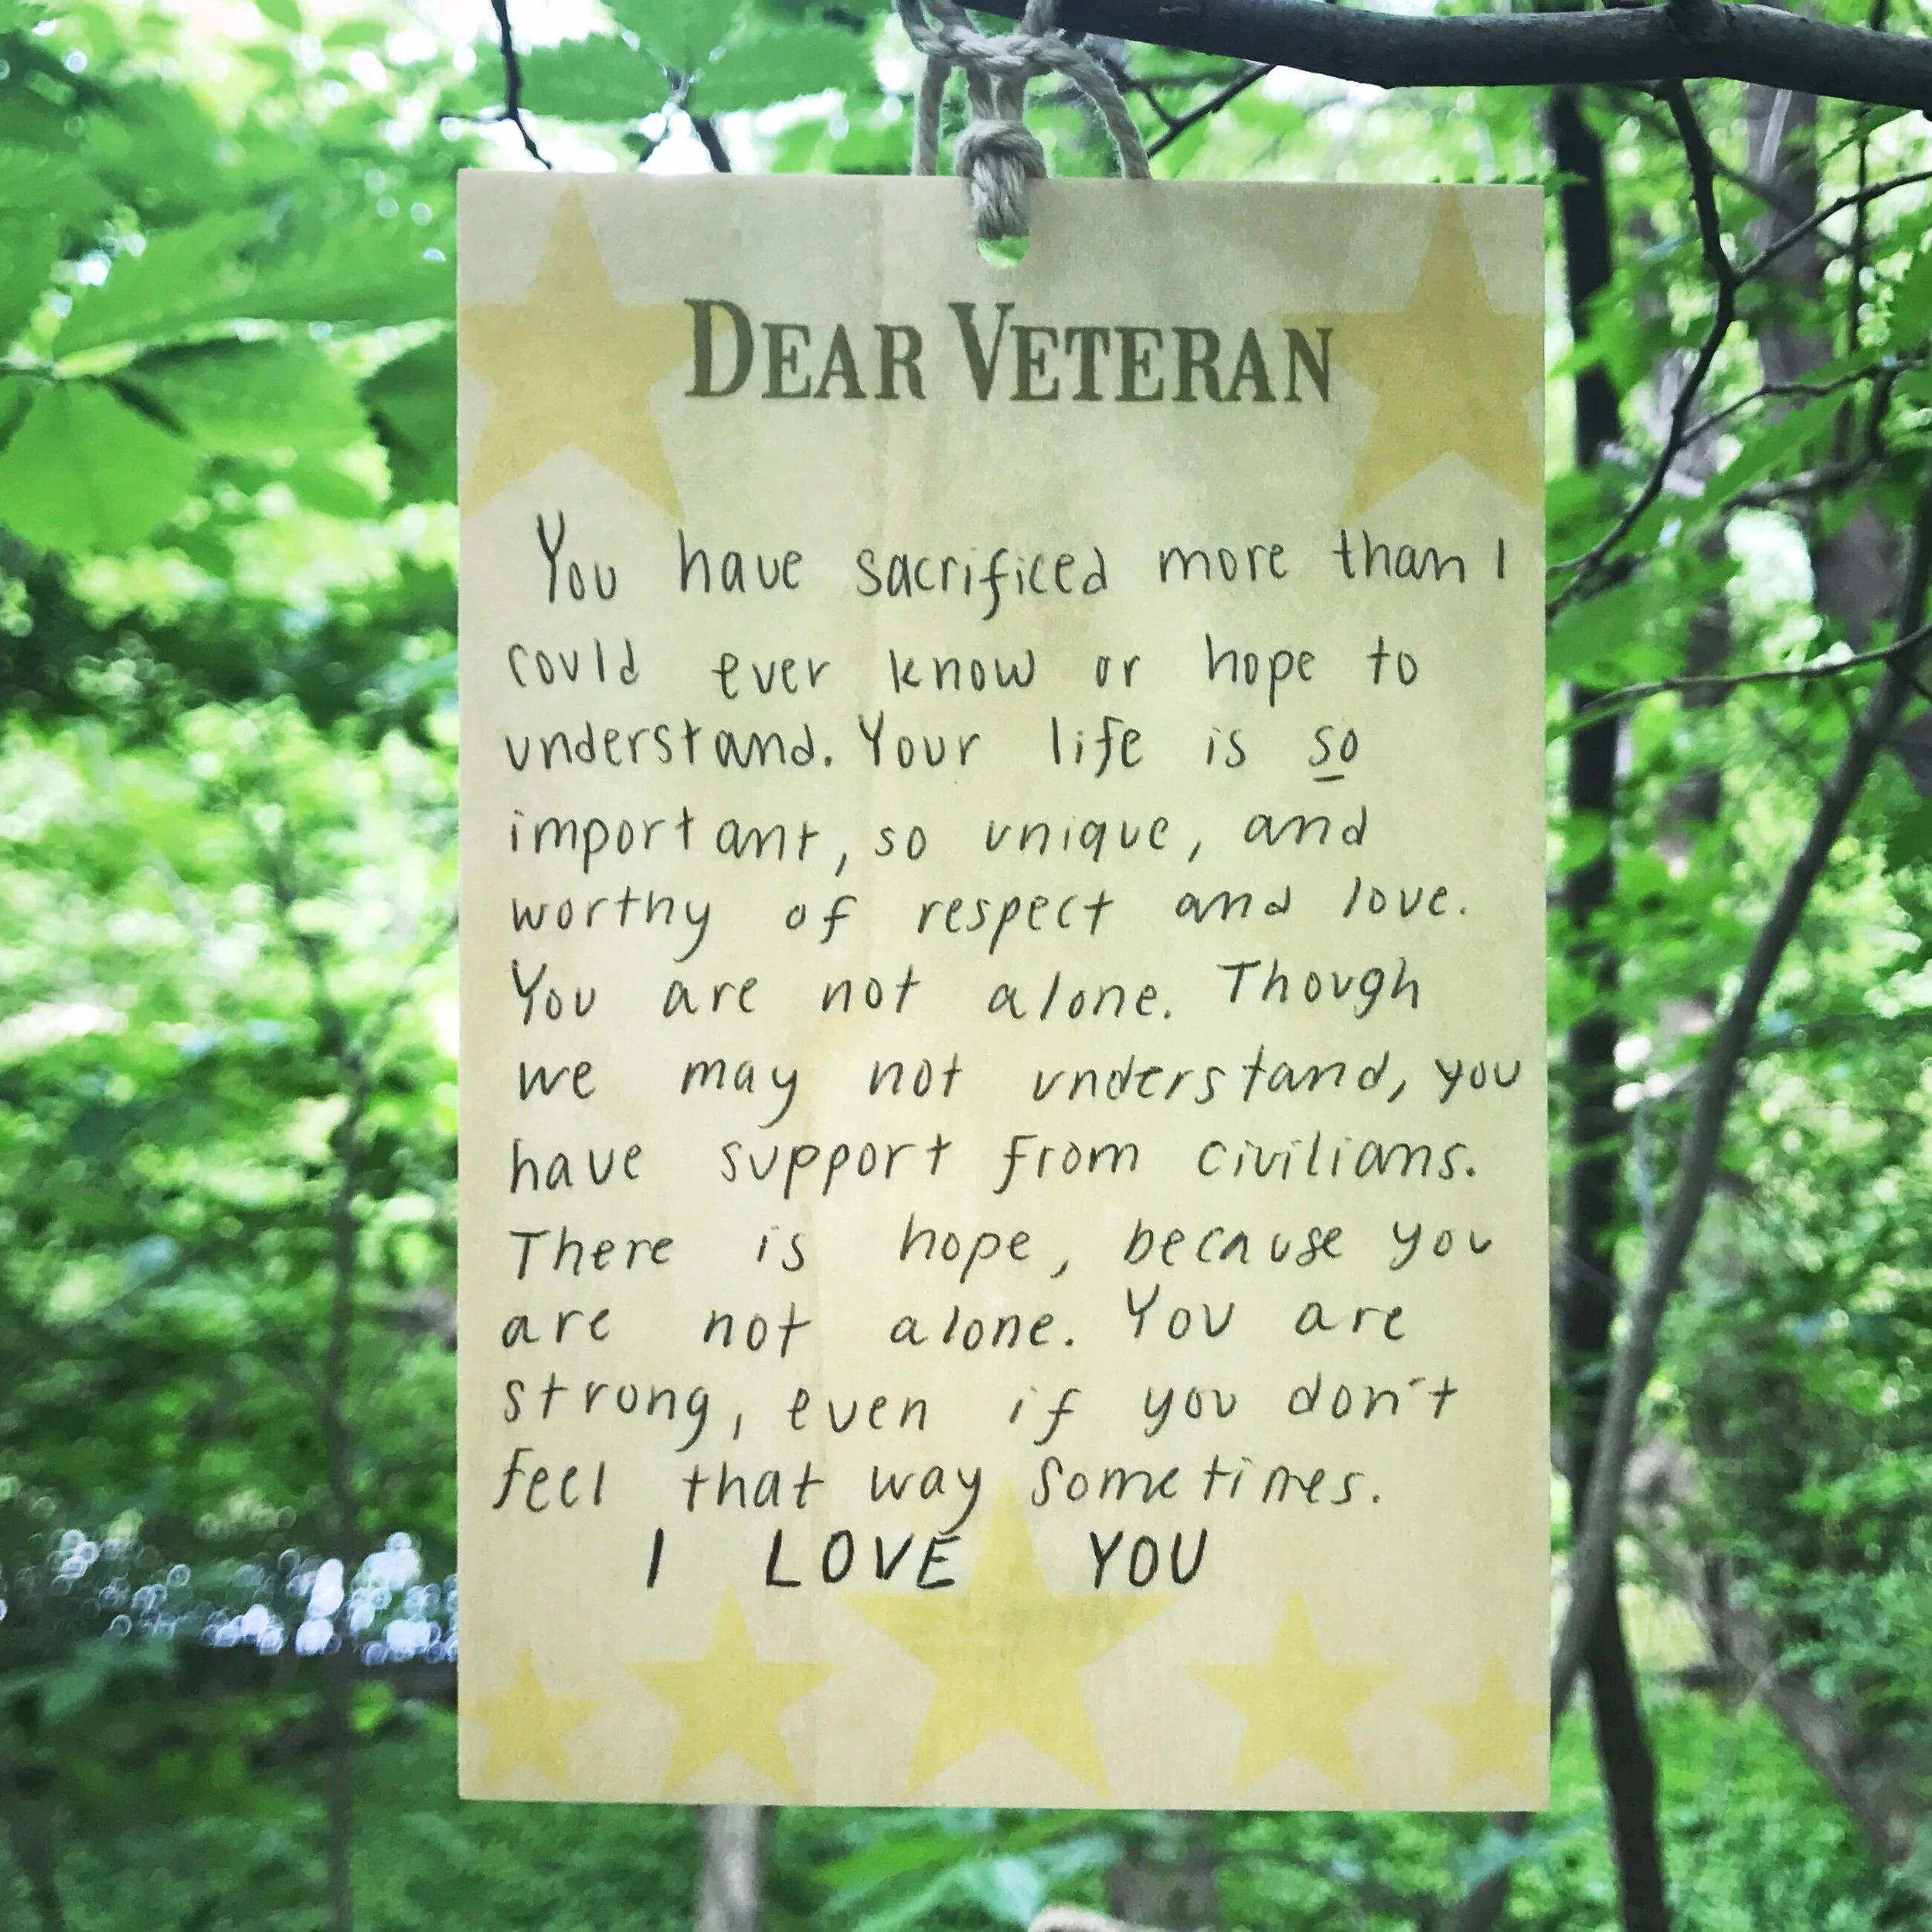 DEAR VETERAN
You have sacrificed more than I
could ever know or hope to
understand. Your life is so
important, so unique, and
worthy of respect and love.
You are not alone. Though
we may not understand, you
have support from civilians.
There is hope, because you
are not alone. You are
strong, even if you don't
feel that way sometimes.
I LOVE YOU